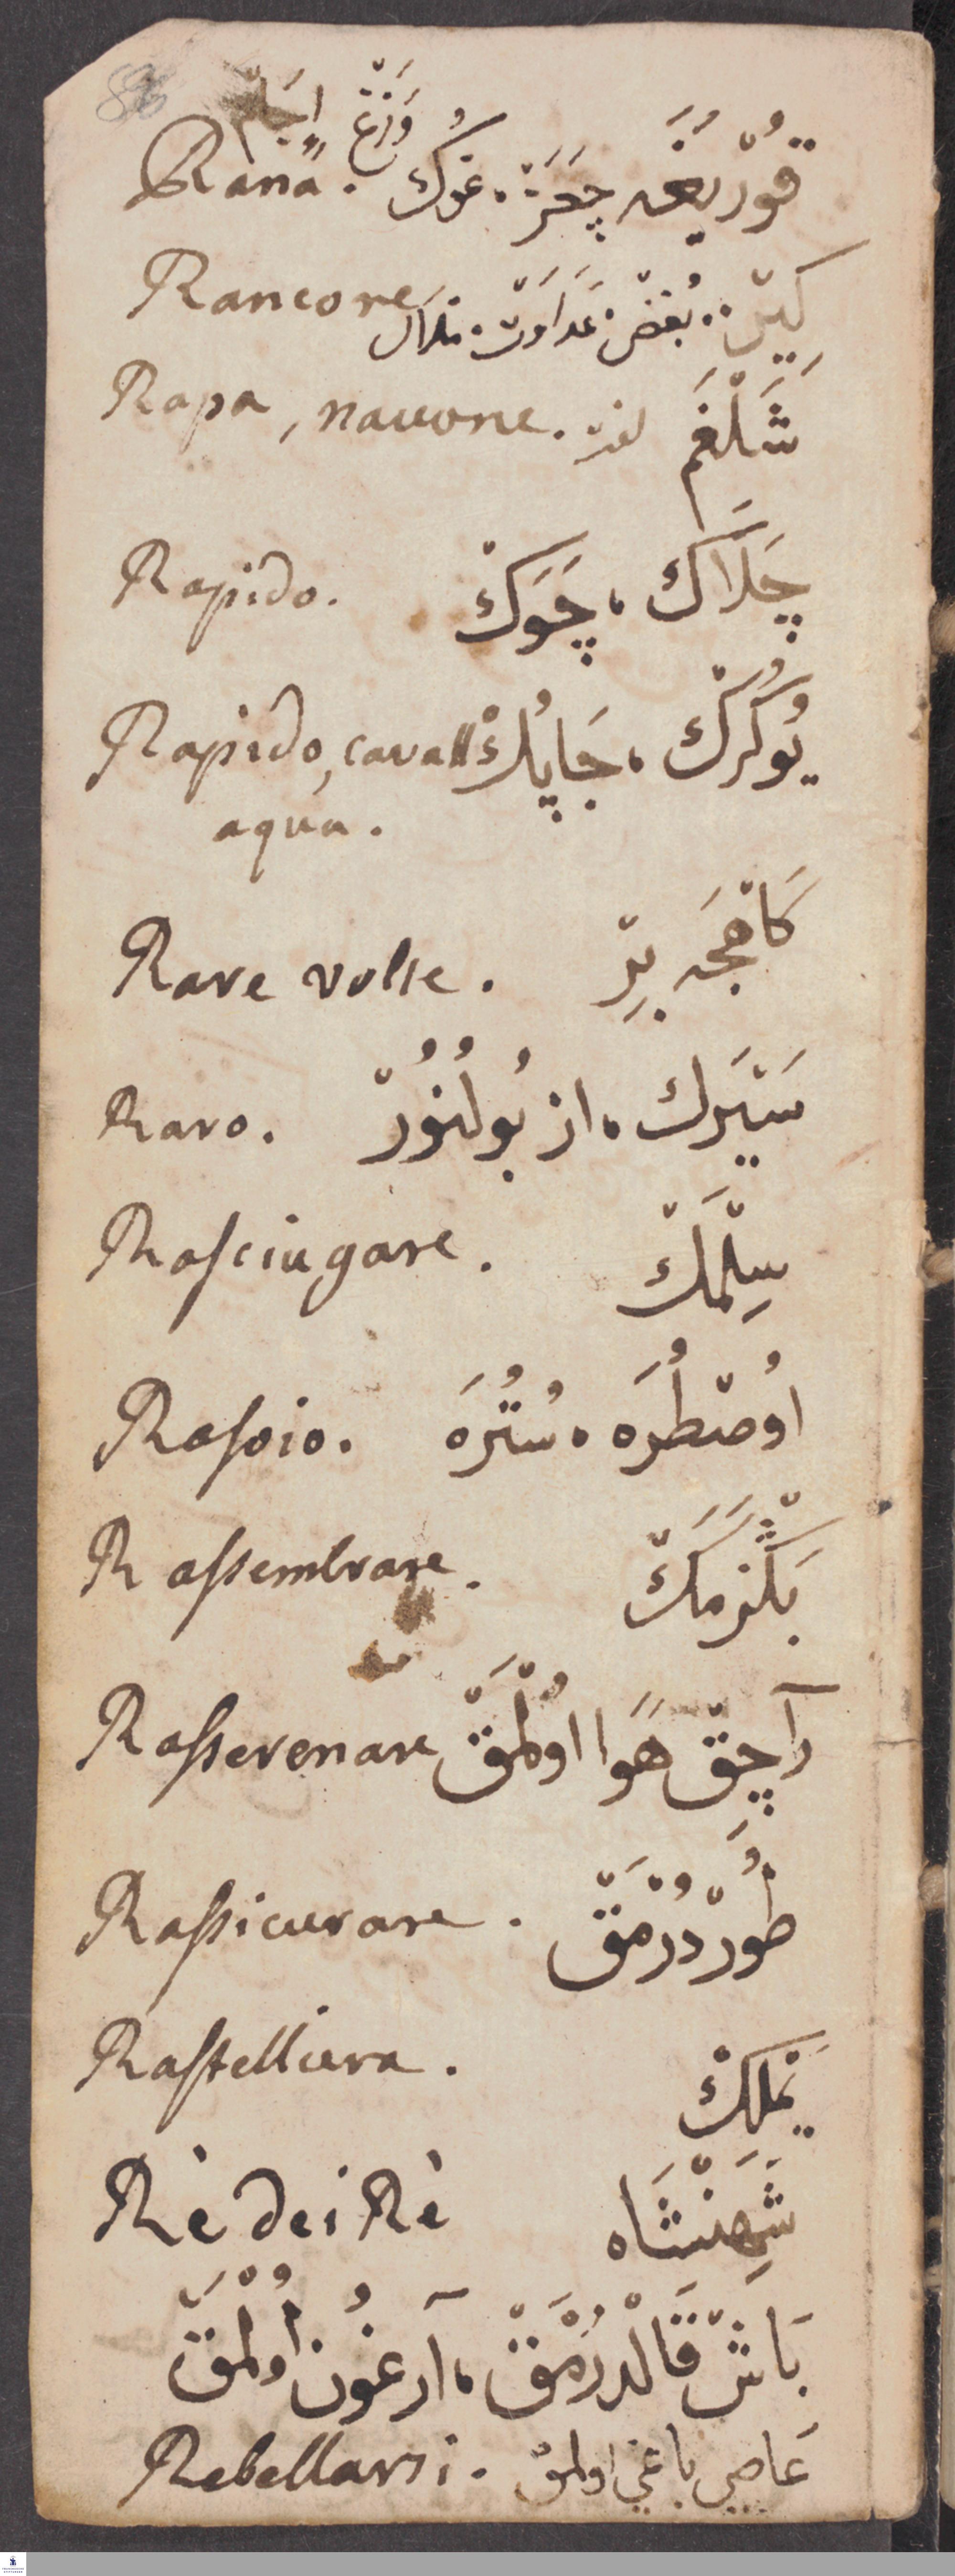 86
وَزَغْ
Rana. قُورْبَغَه چَغَزْ، غوُكْ
Rancore كِينْ. بُغضْ. عَدَاوَتْ. ملال
Rapa, navone. شَلْغَمْ لفت
Rapido. چَلَاكْ، چَوَكْ
Rapido, cavall يُوكُرُكْ، جَاپُكْ
aqua.
Rare volte. كَاهْجَه بِرْ
Raro. سَيْرَك، از بُولُنُورْ
Rasciugare. سِلْمَكْ
Rasoio. اوُصْطُرَه، سُتُرَه
Rassembrare. بَكْزَمَكْ
Rasserenare آچِقْ هَوا اوُلْمَقْ
Rassicurare. طُورْدُرْمَقْ
Rastelliera. يَمْلِكْ
Rè dei Rè شَهِنْشَاه
بَاشْ قَالْدُرْمَقْ، آرغُون اُولْمَقْ
Rebellarsi. عَاصِي باغي اولمق